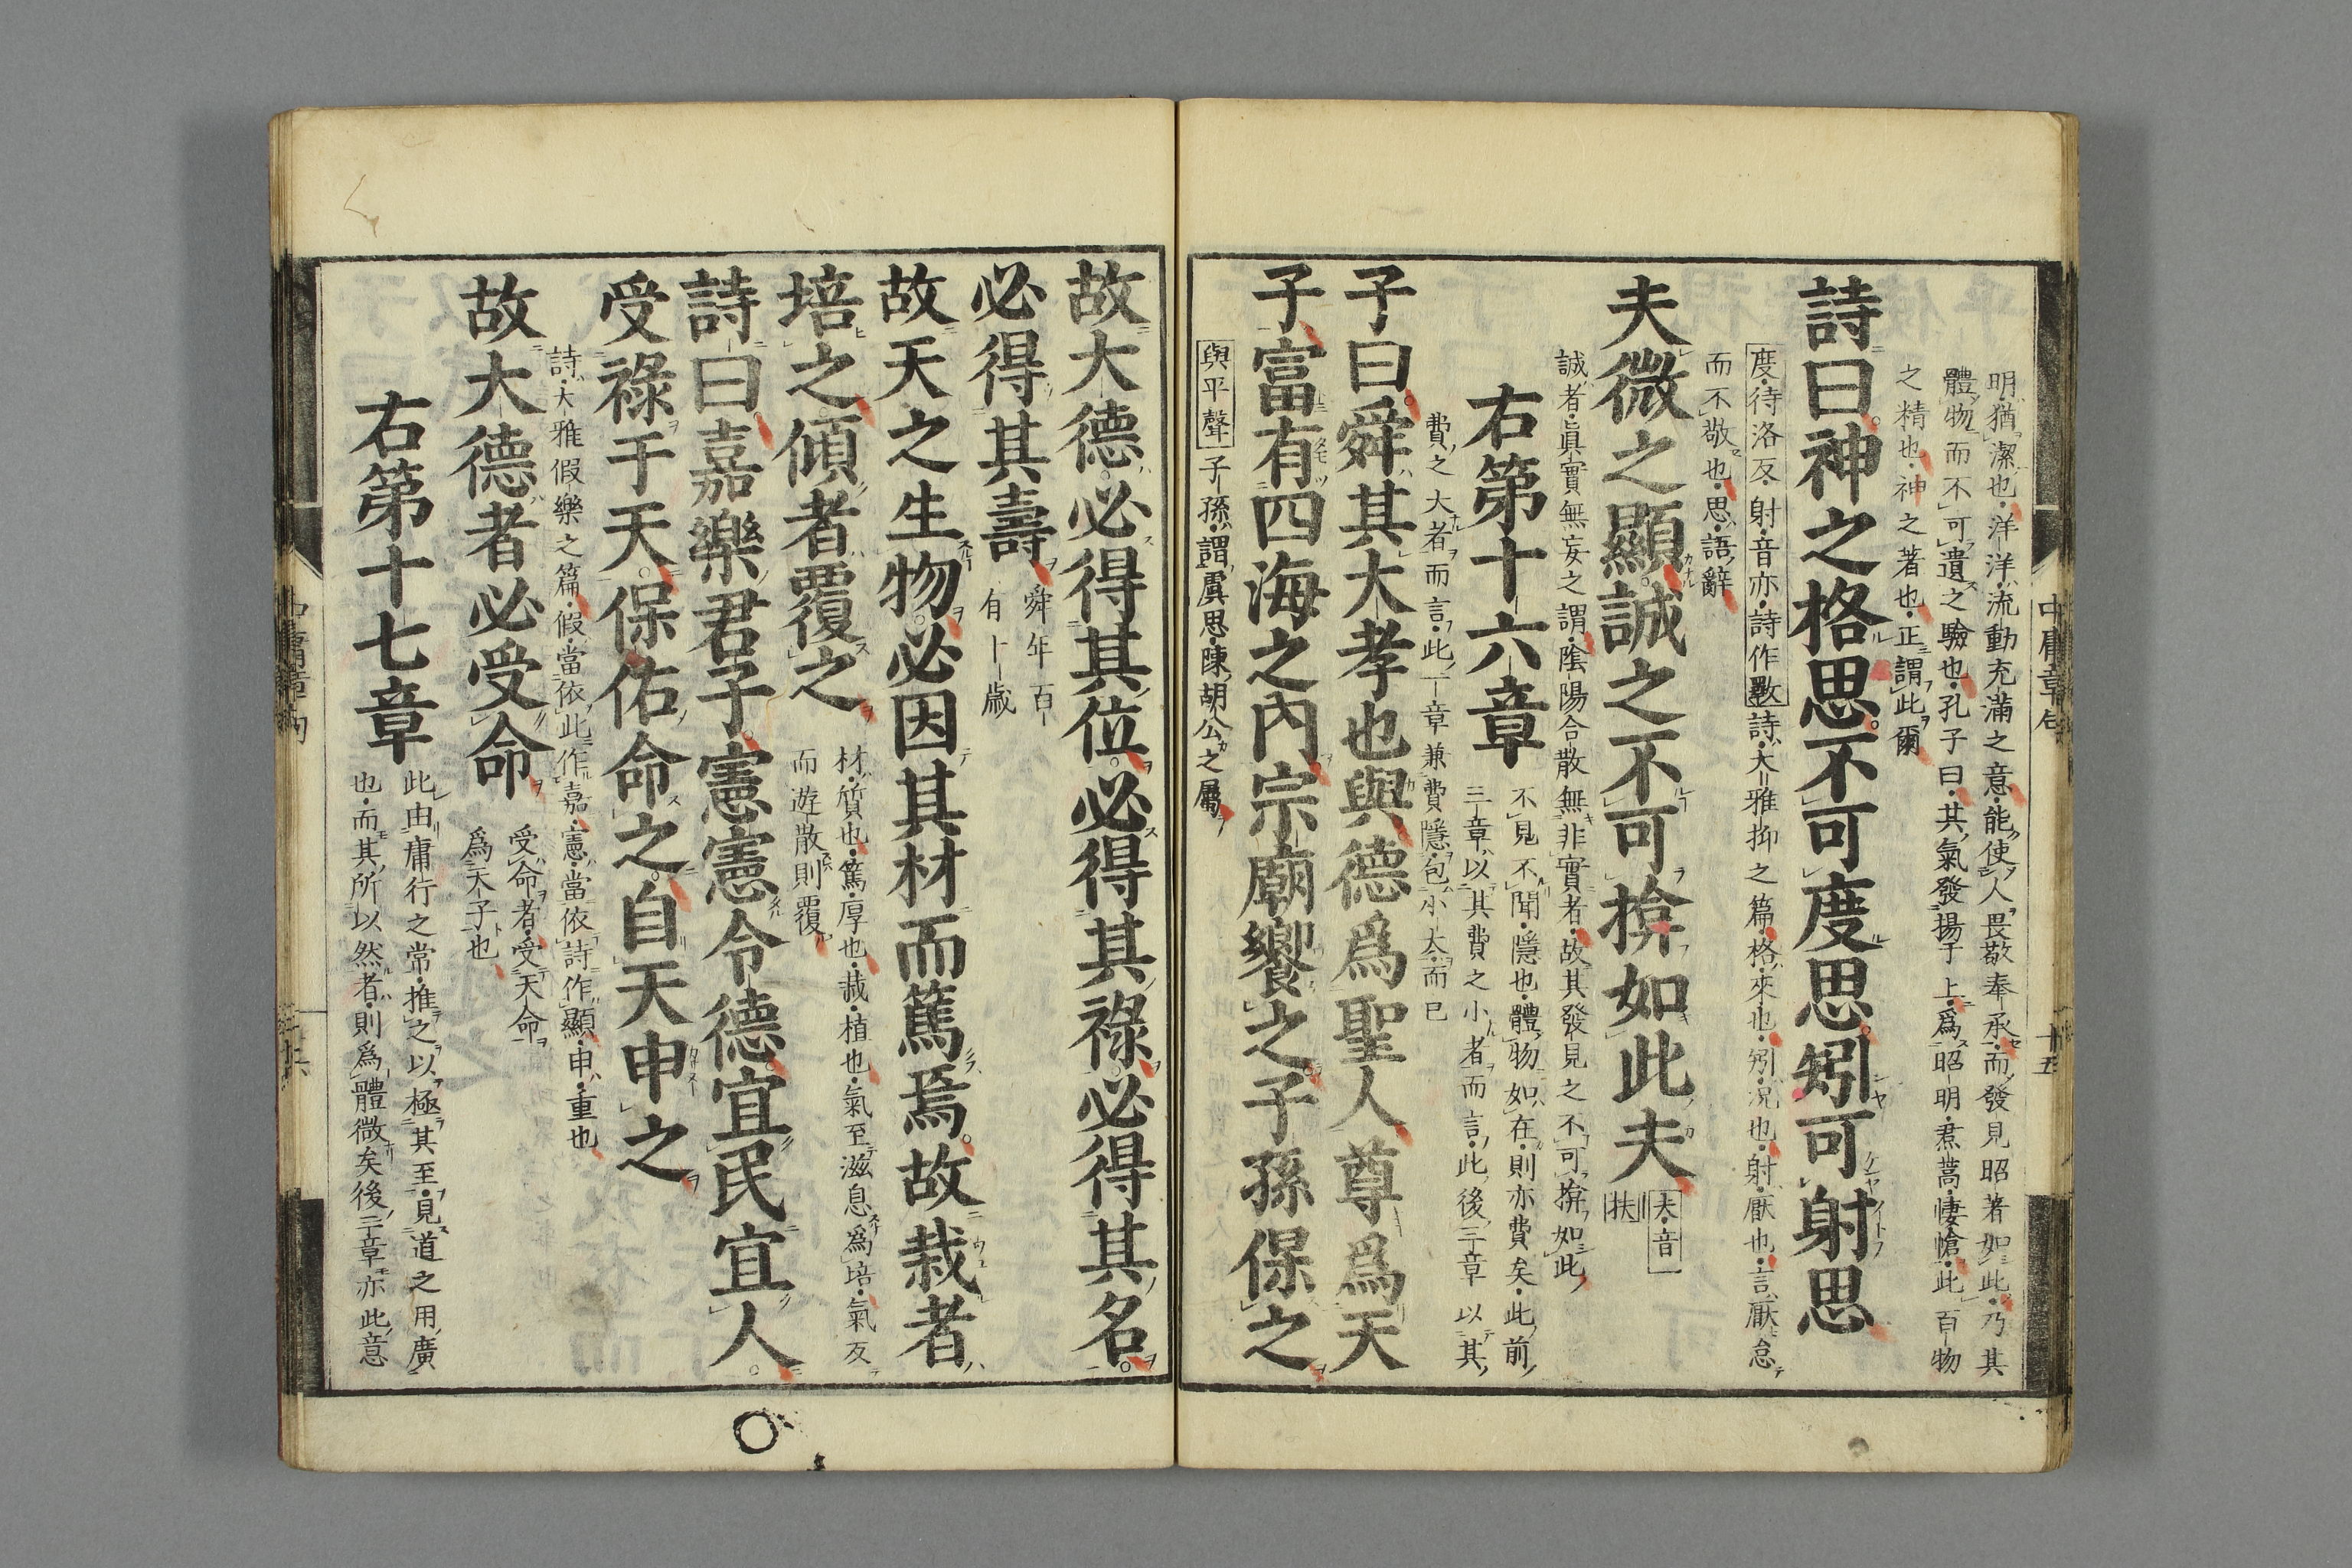 明、猶潔也、洋洋、流動充滿之意、能使人畏敬奉承、而發見昭著如此、乃其
體物而不可遺之驗也、孔子曰、其氣發揚于上、爲昭明、焄蒿、悽愴、此百物
之精也、神之著也、正謂此爾
詩曰。神之格思。不可度思。矧可射思
度、待洛反、射、音亦、詩作斁詩、大雅抑之篇、格、來也、矧、況也、射、厭也、言、厭怠
而不敬也、思、語辭
夫微之顯。誠之不可揜如此夫
夫、音
扶
誠者、眞實無妄之謂、陰陽合散無非實者、故其發見之不可揜如此
右第十六章
不見不聞、隱也、體物如在、則亦費矣、此前
三章、以其費之小者而言、此後三章以其
費之大者而言、此一章兼費隱、包小大、而言
子曰。舜其大孝也與德爲聖人尊爲天
子富有四海之內宗廟饗之。子孫保之
與平聲子孫、謂虞思、陳胡公之屬
中庸章句
十五
故大德必得其位。必得其祿。必得其名。
必得其壽
舜年百
有十歲
故天之生物。必因其材而篤焉。故栽者
培之傾者覆之
材、質也、篤、厚也、栽、植也、氣至滋息爲培、氣反
而遊散則覆
詩曰。嘉樂君子。憲憲令德。宜民宜人。
受祿于天。保佑命之。自天申之
詩、大雅假樂之篇、假、當依此作嘉、憲、當依詩作顯、申、重也
故大德者必受命
受命者、受天命
爲天子也
右第十七章
此由庸行之常、推之以極其至、見道之用廣
也、而其所以然者、則爲體微矣後二章亦此意